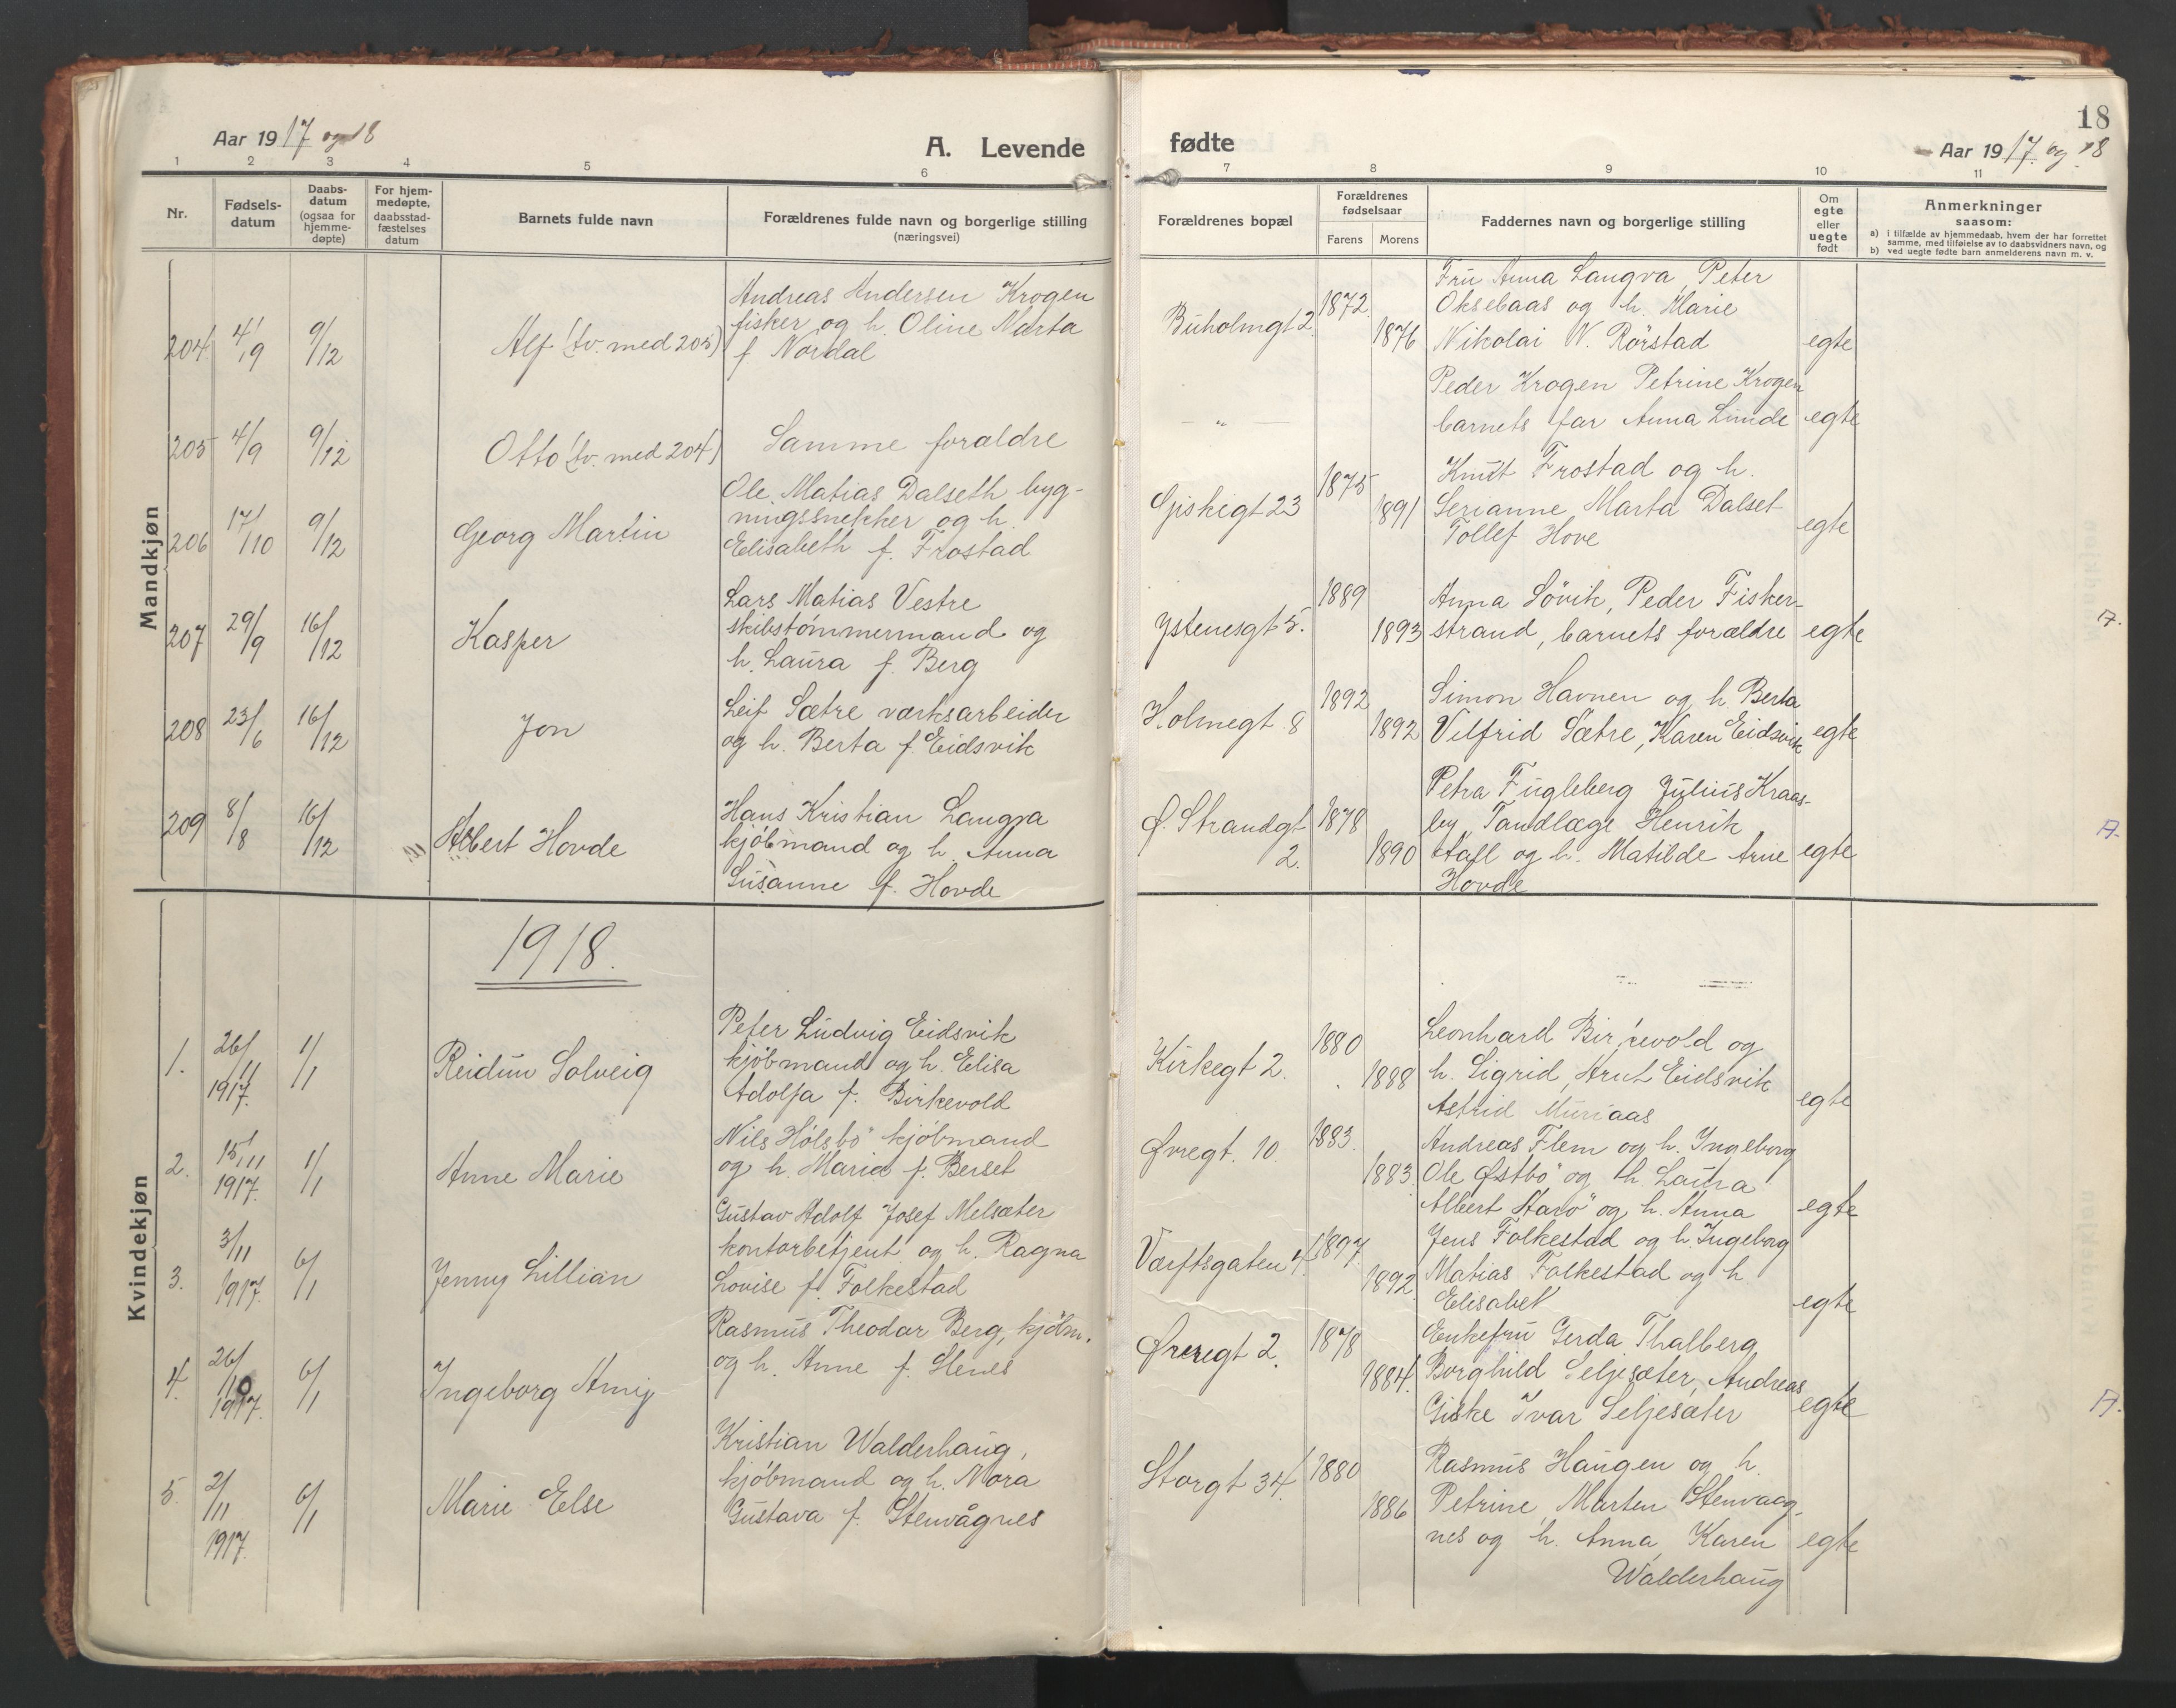 18
Aar 1917 og 18
A. Levende
fødte
Aar 1917 og 18
1 2 3 4 5 6 7 8 9 10 11
Nr.
Fødsels-
datum
Daabs-
datum
(ogsaa for
hjemme-
døpte)
For hjem-
medøpte,
daabsstad-
fæstelses
datum
Barnets fulde navn
Forældrenes fulde navn og borgerlige stilling
(næringsvei)
Forældrenes bopæl
Forældrenes
fødselsaar
Farens Morens
Faddernes navn og borgerlige stilling
Om
egte
eller
uegte
født
Anmerkninger
saasom:
a) i tilfælde av hjemmedaab, hvem der har forrettet
samme, med tilføielse av to daabsvidners navn, og
b) ved uegte fødte barn anmelderens navn m. v.
Mandkjøn
204. 4/9 9/12
Alf (tv. med 205)
Andreas Andersen Krogen
fisker og h. Oline Marta
f. Nordal
Buholmgt 2.
1872.
1876
Fru Anna Langva, Peter
Oksebaas og h. Marie
Nikolai N. Rørstad
egte
205 4/9 9/12
Otto (tv. med 204)
Samme forældre
— „ —
Peder Krogen Petrine Krogen
barnets far Anna Linde
egte
206 17/10 9/12
Georg Martin
Ole Matias Dalseth byg-
ningssnekker og h.
Elisabeth f. Frostad
Giskegt 23
1875
1891
Knut Frostad og h.
Serianne Marta Dalset
Tollef Hove
egte
207 29/9 16/12
Kasper
Lars Matias Vestre
skibstømmermand og
h. Laura f. Berg
Ystenesgt 5.
1889
1893
Anna Løvik, Peder Fisker-
strand, barnets forældre
egte
A.
208 23/6 16/12
Jon
Leif Sætre værksarbeider
og h. Berta f. Eidsvik
Holmegt. 8
1892
1892
Simon Havnen og h. Berta
Vilfrid Sætre, Karen Eidsvik
egte
209 8/8 16/12
Albert Hovde
Hans Kristian Langva
kjøbmand og h. Anna
Susanne f. Hovde
Ø. Strandgt
2.
1878
1890
Petra Fugleberg Julius Kraas-
by, Tandlæge Henrik
Aall og h. Matilde Arne
Hovde
egte
A.
1918.
Kvindekjøn
1. 26/11 1917. 1/1
Reidun Solveig
Peter Ludvig Eidsvik
kjøbmand og h. Elisa
Adolfa f. Birkevold
Kirkegt 2.
1880
1888
Leonhard Birkevold og
h. Sigrid, Knut Eidsvik
Astrid Muriaas
egte
2. 15/11 1917. 1/1
Anne Marie
Nils Holsbø kjøbmand
og h. Maria f. Berset
Øvregt. 10.
1883.
1883.
Andreas Flem og h. Ingeborg
Ole Østbø og h. Laura
Albert Starø og h. Anna
egte
3. 3/11 1917. 6/1
Jenny Lillian
Gustav Adolf Josef Melsæter
kontorbetjent og h. Ragna
Lovise f. Folkestad
Værftsgaten 4.
1897.
1892.
Jens Folkestad og h. Ingeborg
Matias Folkestad og h.
Elisabet
egte
4. 26/10 1917. 6/1
Ingeborg Amy
Rasmus Theodor Berg, kjøbm.
og h. Anne f. Stenes
Øvregt 2.
1878
1884.
Enkefru Gerda Thalberg
Borghild Seljesæter, Andreas
Giske Ivar Seljesæter
egte
A.
5. 2/11 1917. 6/1
Marie Else
Kristian Walderhaug,
kjøbmand og h. Nora
Gustava f. Stenvågnes
Storgt 34.
1880
1886
Rasmus Haugen og h.
Petrine, Marten Stenvaag-
nes og h. Anna, Karen
Walderhaug
egte